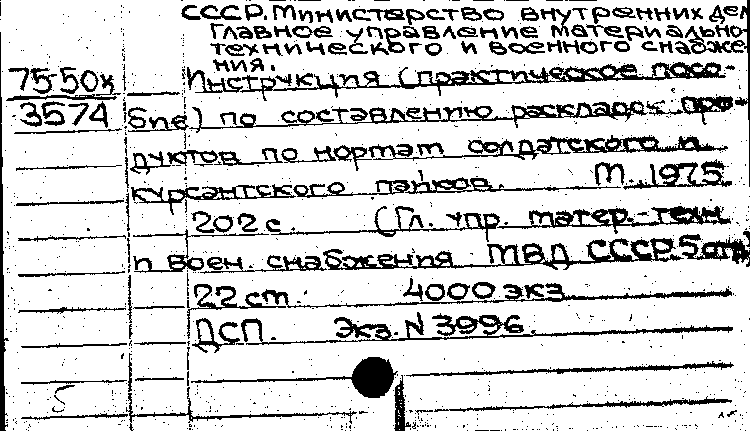 СССР. Министерство внутренних дел
Главное управление материально-
технического и военного снабже-
ния.
75-50к Инструкция (практическое посо-
3574 бие) по составлению раскладок про-
дуктов по нормам солдатского и
курсантского пайков. М., 1975
202 с. (Гл. упр. матер.-техн.
и воен. снабжения МВД СССР. 5 отд)
22 см. 4000 экз
ДСП. Экз. N 3996.
5